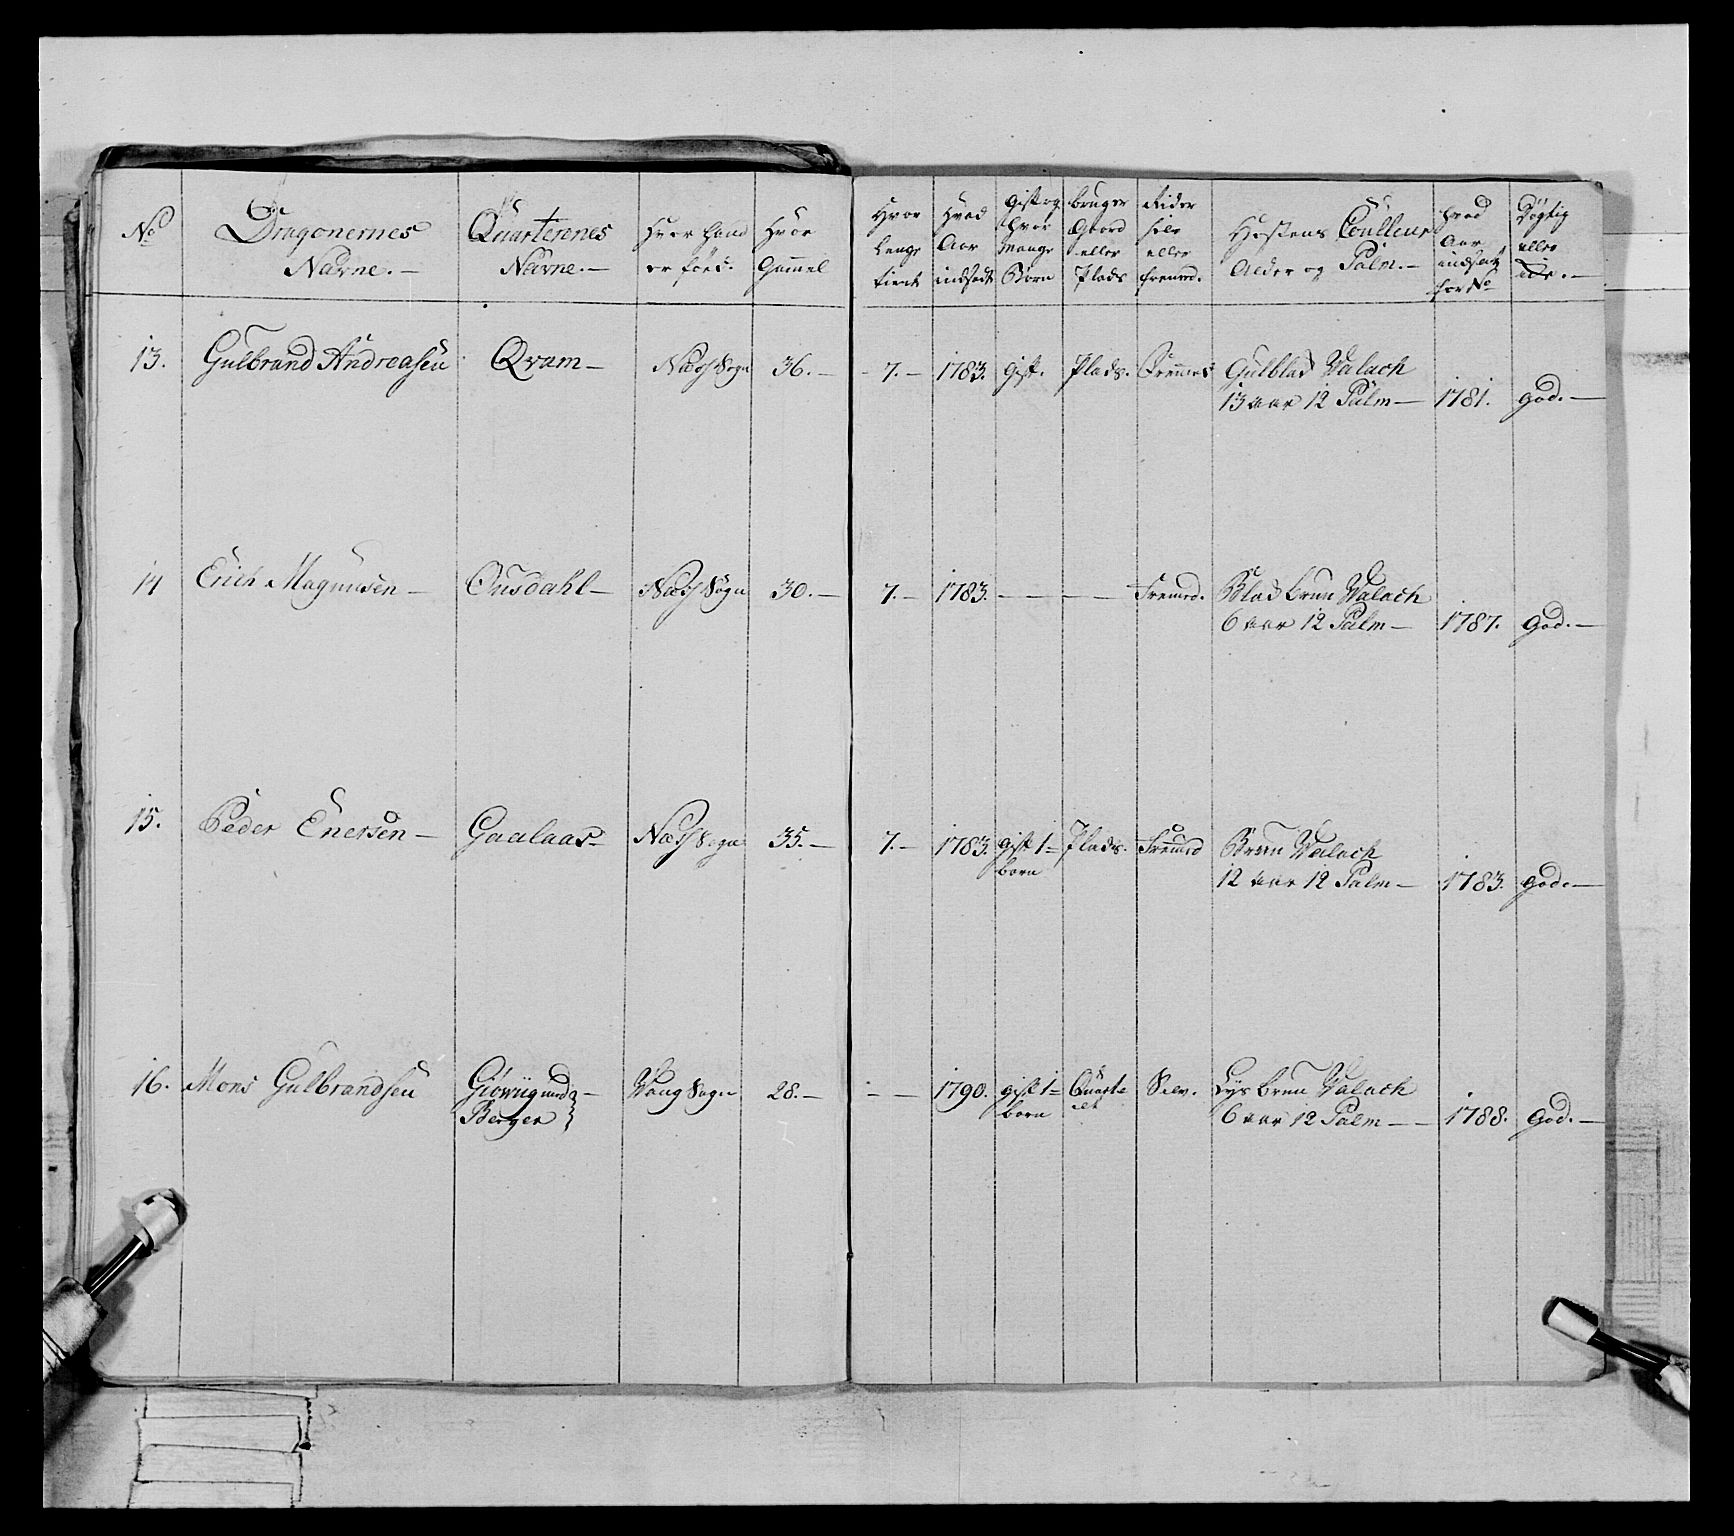 No
Dragonernes
Navne. —
Quarterenes
Navne. —
Hvor hand
er föed.
Hvor
Gammel
Hvor
Lenge
tient
Hvad
Aar
indsadt
Gift og
hvor
mange
Börn
bruger
Gaard
eller
Plads
Rider
selv
eller
fremed.
Hestens Coulleur
Alder og Palm. —
hvad
Aar
indsat
for No
Dygtig
eller
ei. —
13. Gulbrand Andreasen Qvam — Næs Sogn 36. — - 7. — 1783. Gift. Plads. Fremmed Gulblad Valach
13 aar 12 Palm — 1781. god. —
14 Erich Magnusen — Onsdahl — Næs Sogn 30. — 7. — 1783. — — — — Fremed. Blad brun Valach
6 aar 12 Palm — 1787. God. —
15. Peder Enersen — Gaalaas — Næs Sogn 35. — 7. — 1783. gift 1= Plads. Fremed Brun Valach
born
12 aar 12 Palm — 1783. god. —
16. Mons Gulbrandsen Giövüg und — Vang Sogn 28. — - — 1790. gift 1= Quarte Selv. Lys brun Valach
Berger born eet 6 aar 12 Palm — — 1788. God. —